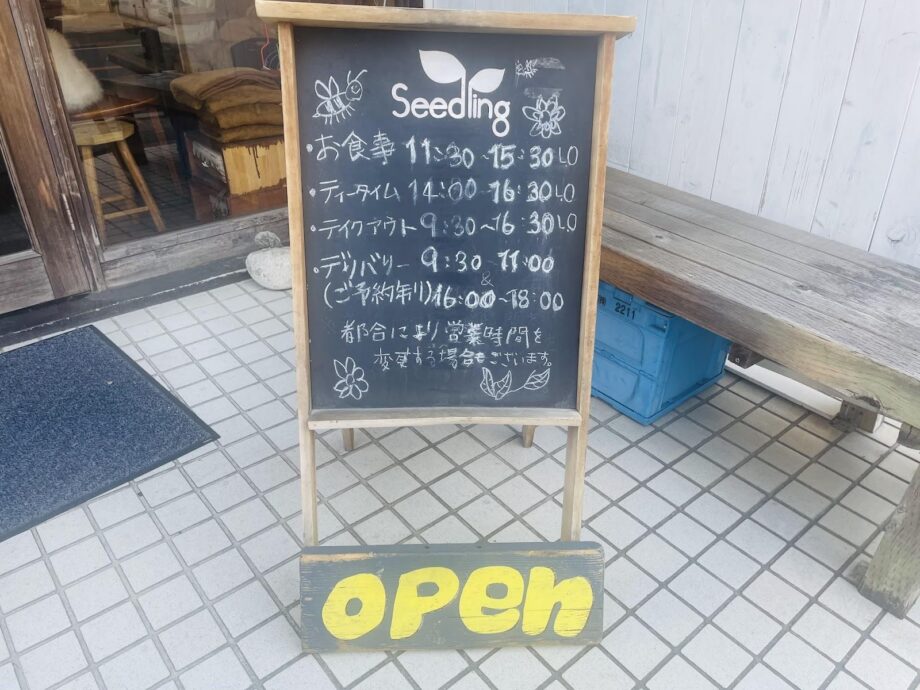 Seedling
・お食事 11:30~15:30LO
・ティータイム 14:00~16:30LO
・テイクアウト 9:30~16:30LO
・デリバリー 9:30~11:00
&
(ご予約制り)16:00~18:00
都合により営業時間を
変更する場合もございます。
2211
open